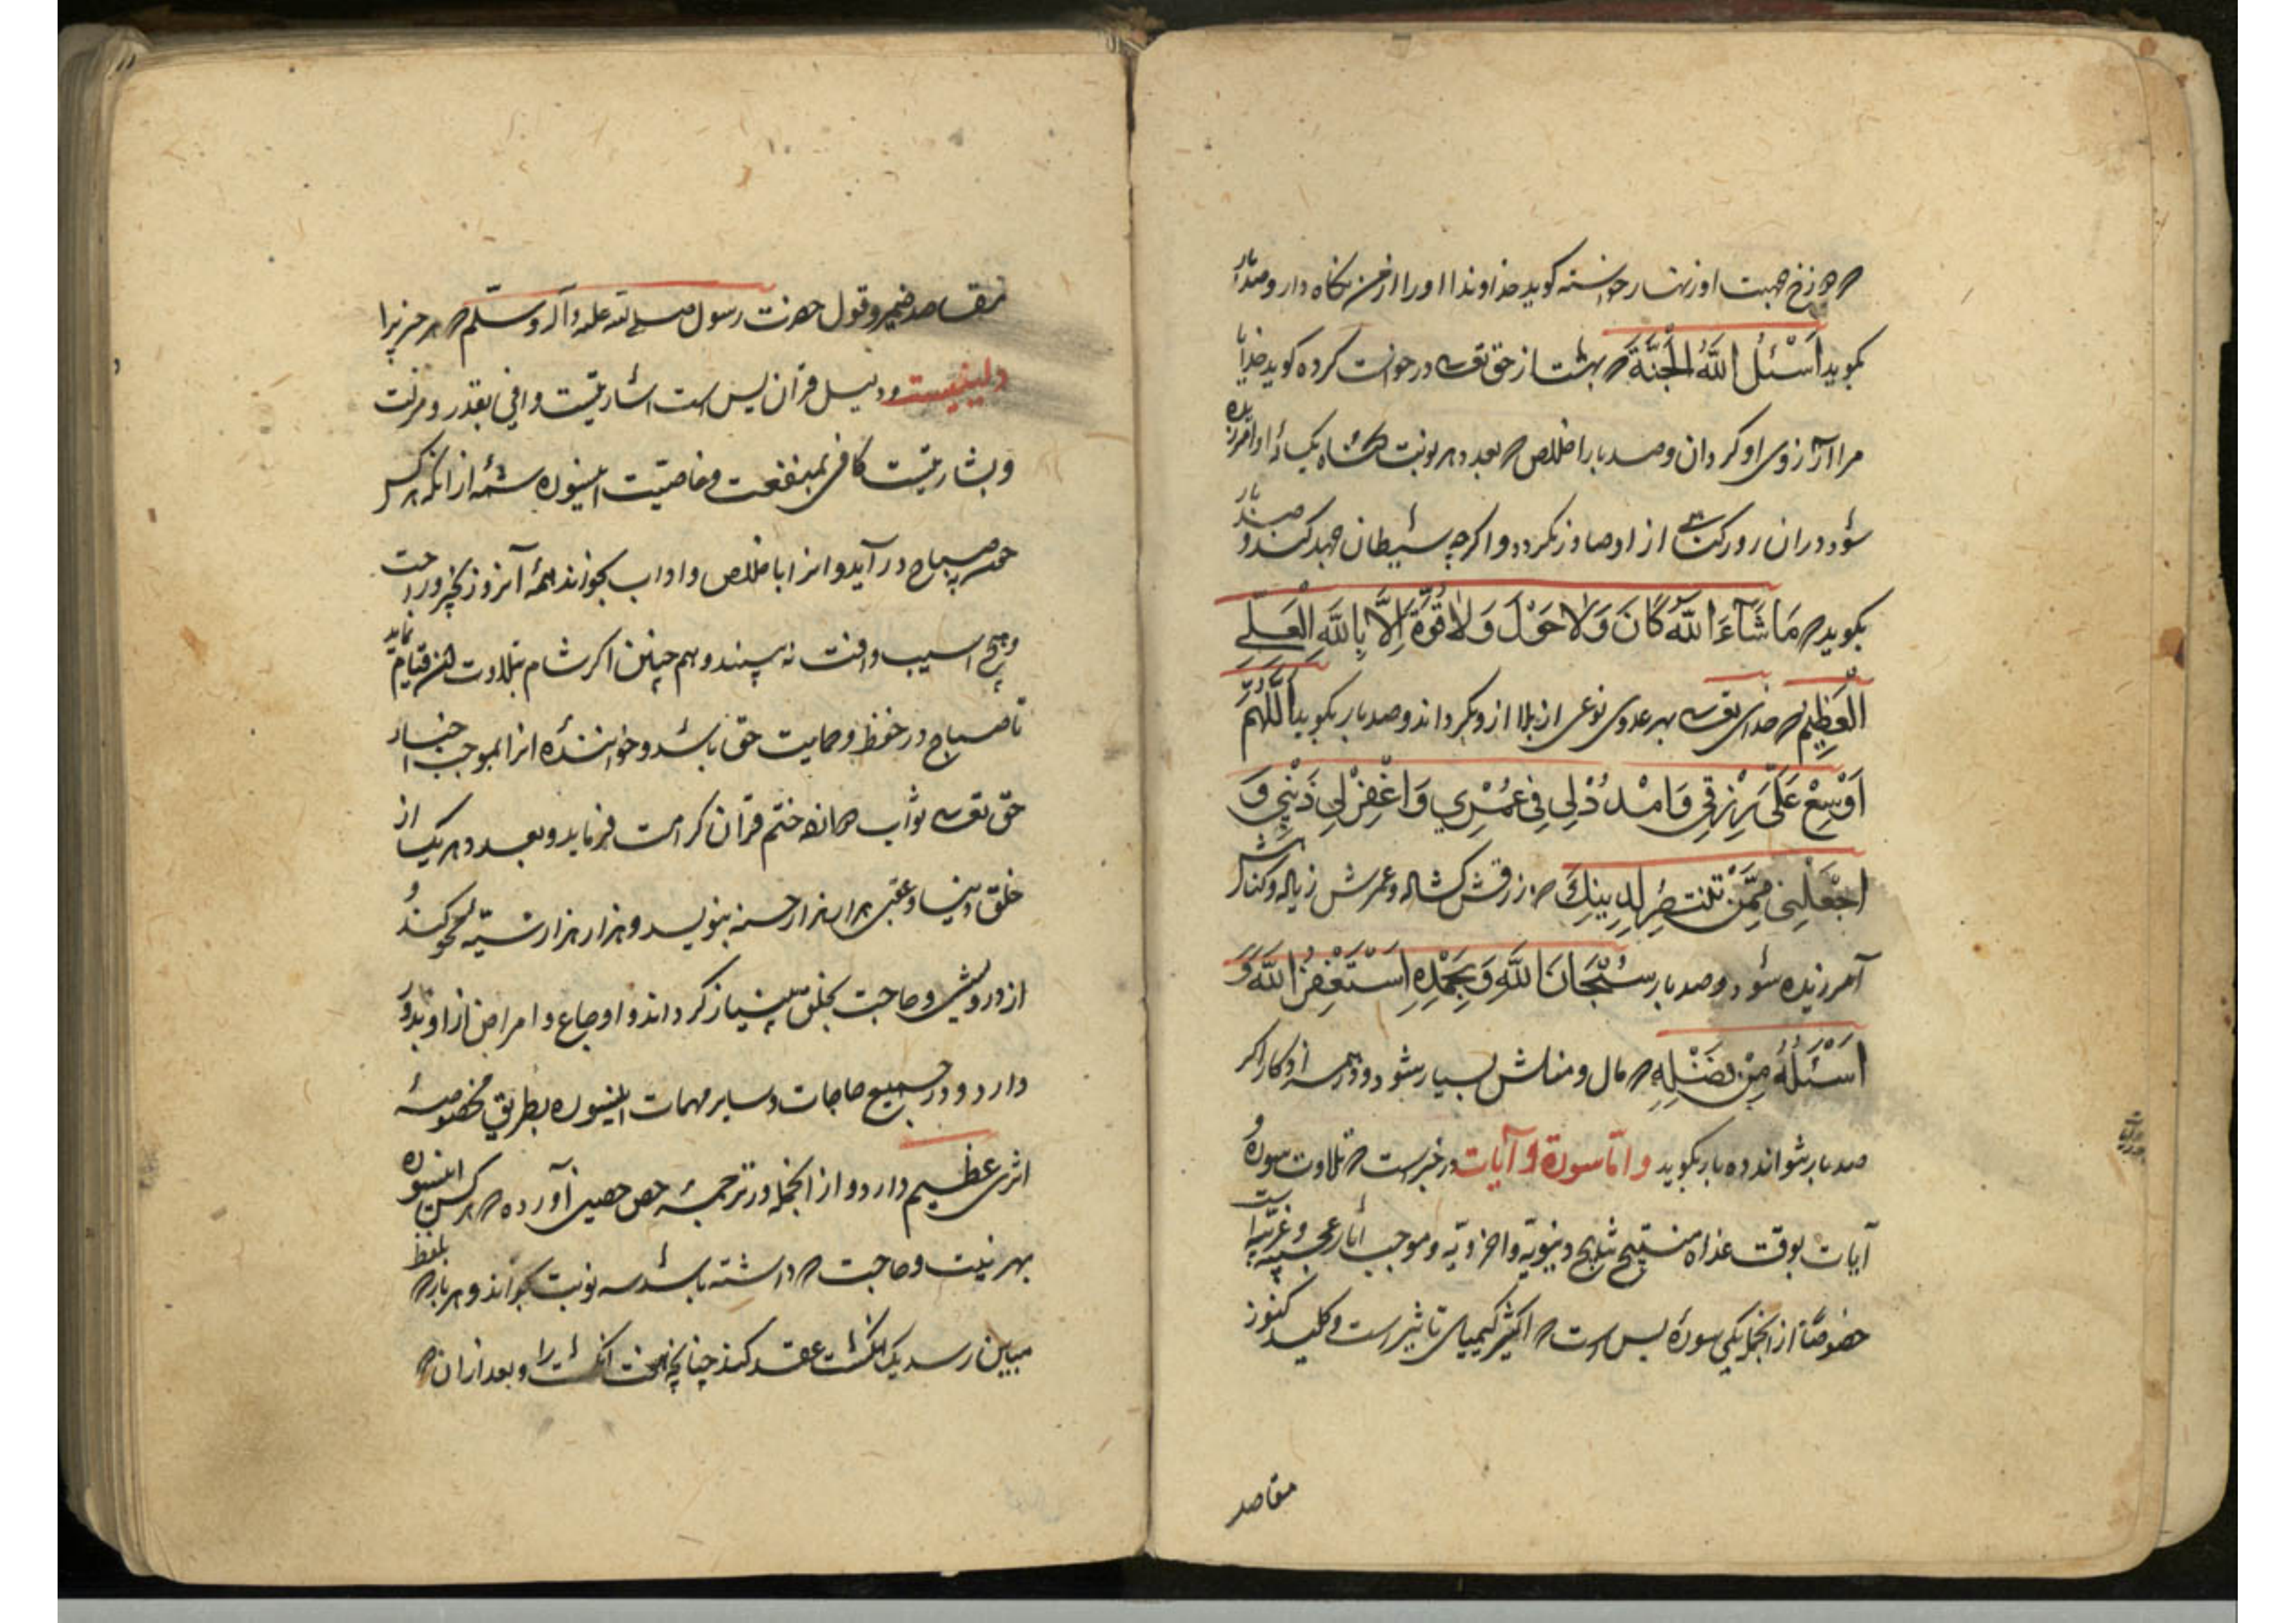 که دوزخ بجهت او زنهار خواسته گوید خداوندا او را از من نگاه دار و صد بار
بگوید اَسْئَلُ اللّٰهَ الْجَنَّةَ که بهشت از حق تعالی درخواست کرده گوید خدایا
مرا آرزوی او گردان و صد بار اخلاص که بعد دهر نوبت گناه یکساله او آمرزیده
شود و دران روز برکت از او صادر نگردد و اگرچه شیطان جهد کند و صد بار
بگوید که مَا شَآءَ اللّٰهُ كَانَ وَلَا حَوْلَ وَلَا قُوَّةَ اِلَّا بِاللّٰهِ الْعَلِیِّ
الْعَظِیْمِ که خدای تعالی بهر عددی نوعی از بلا ازو بگرداند و صد بار بگوید اَللّٰهُمَّ
اَوْسِعْ عَلَیَّ رِزْقِی وَامْدُدْ لِی فِی عُمْرِی وَاغْفِرْ لِی ذَنْبِی وَ
اجْعَلْنِی مِمَّنْ تَنْتَصِرُ لِدِینِكَ که رزقش گشاده و عمرش زیاده و گناهش
آمرزیده شود و صد بار سُبْحَانَ اللّٰهِ وَبِحَمْدِهِ اَسْتَغْفِرُ اللّٰهَ وَ
اَسْئَلُهُ مِنْ فَضْلِهِ که مال و منالش بسیار شود و در همه اذکار اگر
صد بار نتواند ده بار بگوید و امّا سورة و آیات در خبرست که تلاوت سوره و
آیات بوقت غداه منتج نتایج دنیویه و اخرویه و موجب آثار عجیبه و غریبه است
خصوصًا از انجمله یکی سورهٔ یس است که اکثر کیمیای تاثیر است و کلید کنوز
مقاصد
مقاصد ضمیر و قول حضرت رسول صلی الله علیه و آله و سلّم که هر چیزیرا
دلیلیست و دلیل قرآن یس است اشارتیست وافی بقدر و منزلت
و بشارتیست کافی بمنفعت و خاصیت این سوره شمهٔ از انکه هر کس
چون صباح در آید و انرا باخلاص و اداب بخواند همهٔ آنروز بخیر و راحت
و هیچ اسیب و افت نه بیند و هم چنین اگر شام بتلاوت آن قیام نماید
تا صباح در حفظ و حمایت حق باشد و خوانندهٔ انرا بموجب اخبار
حق تعالی ثواب ختم قرآن کرامت فرماید و بعدد هر یک از
خلق دنیا و عقبی هزار هزار حسنه بنویسد و هزار هزار سیئه محو کند و
از درویشی و حاجت بخلق بی نیاز گرداند و اوجاع و امراض از او بدور
دارد و در جمیع حاجات و سایر مهمات این سوره بطریق مخصوصه
اثری عظیم دارد و از انجمله در ترجمهٔ حصن حصین آورده که هر کس این سوره
بهر نیت و حاجت که داشته باشد سه نوبت بخواند و هر بار که بلفظ
مبین رسد یک انگشت عقد کند چنانچه نخست انگشت را و بعد از ان که